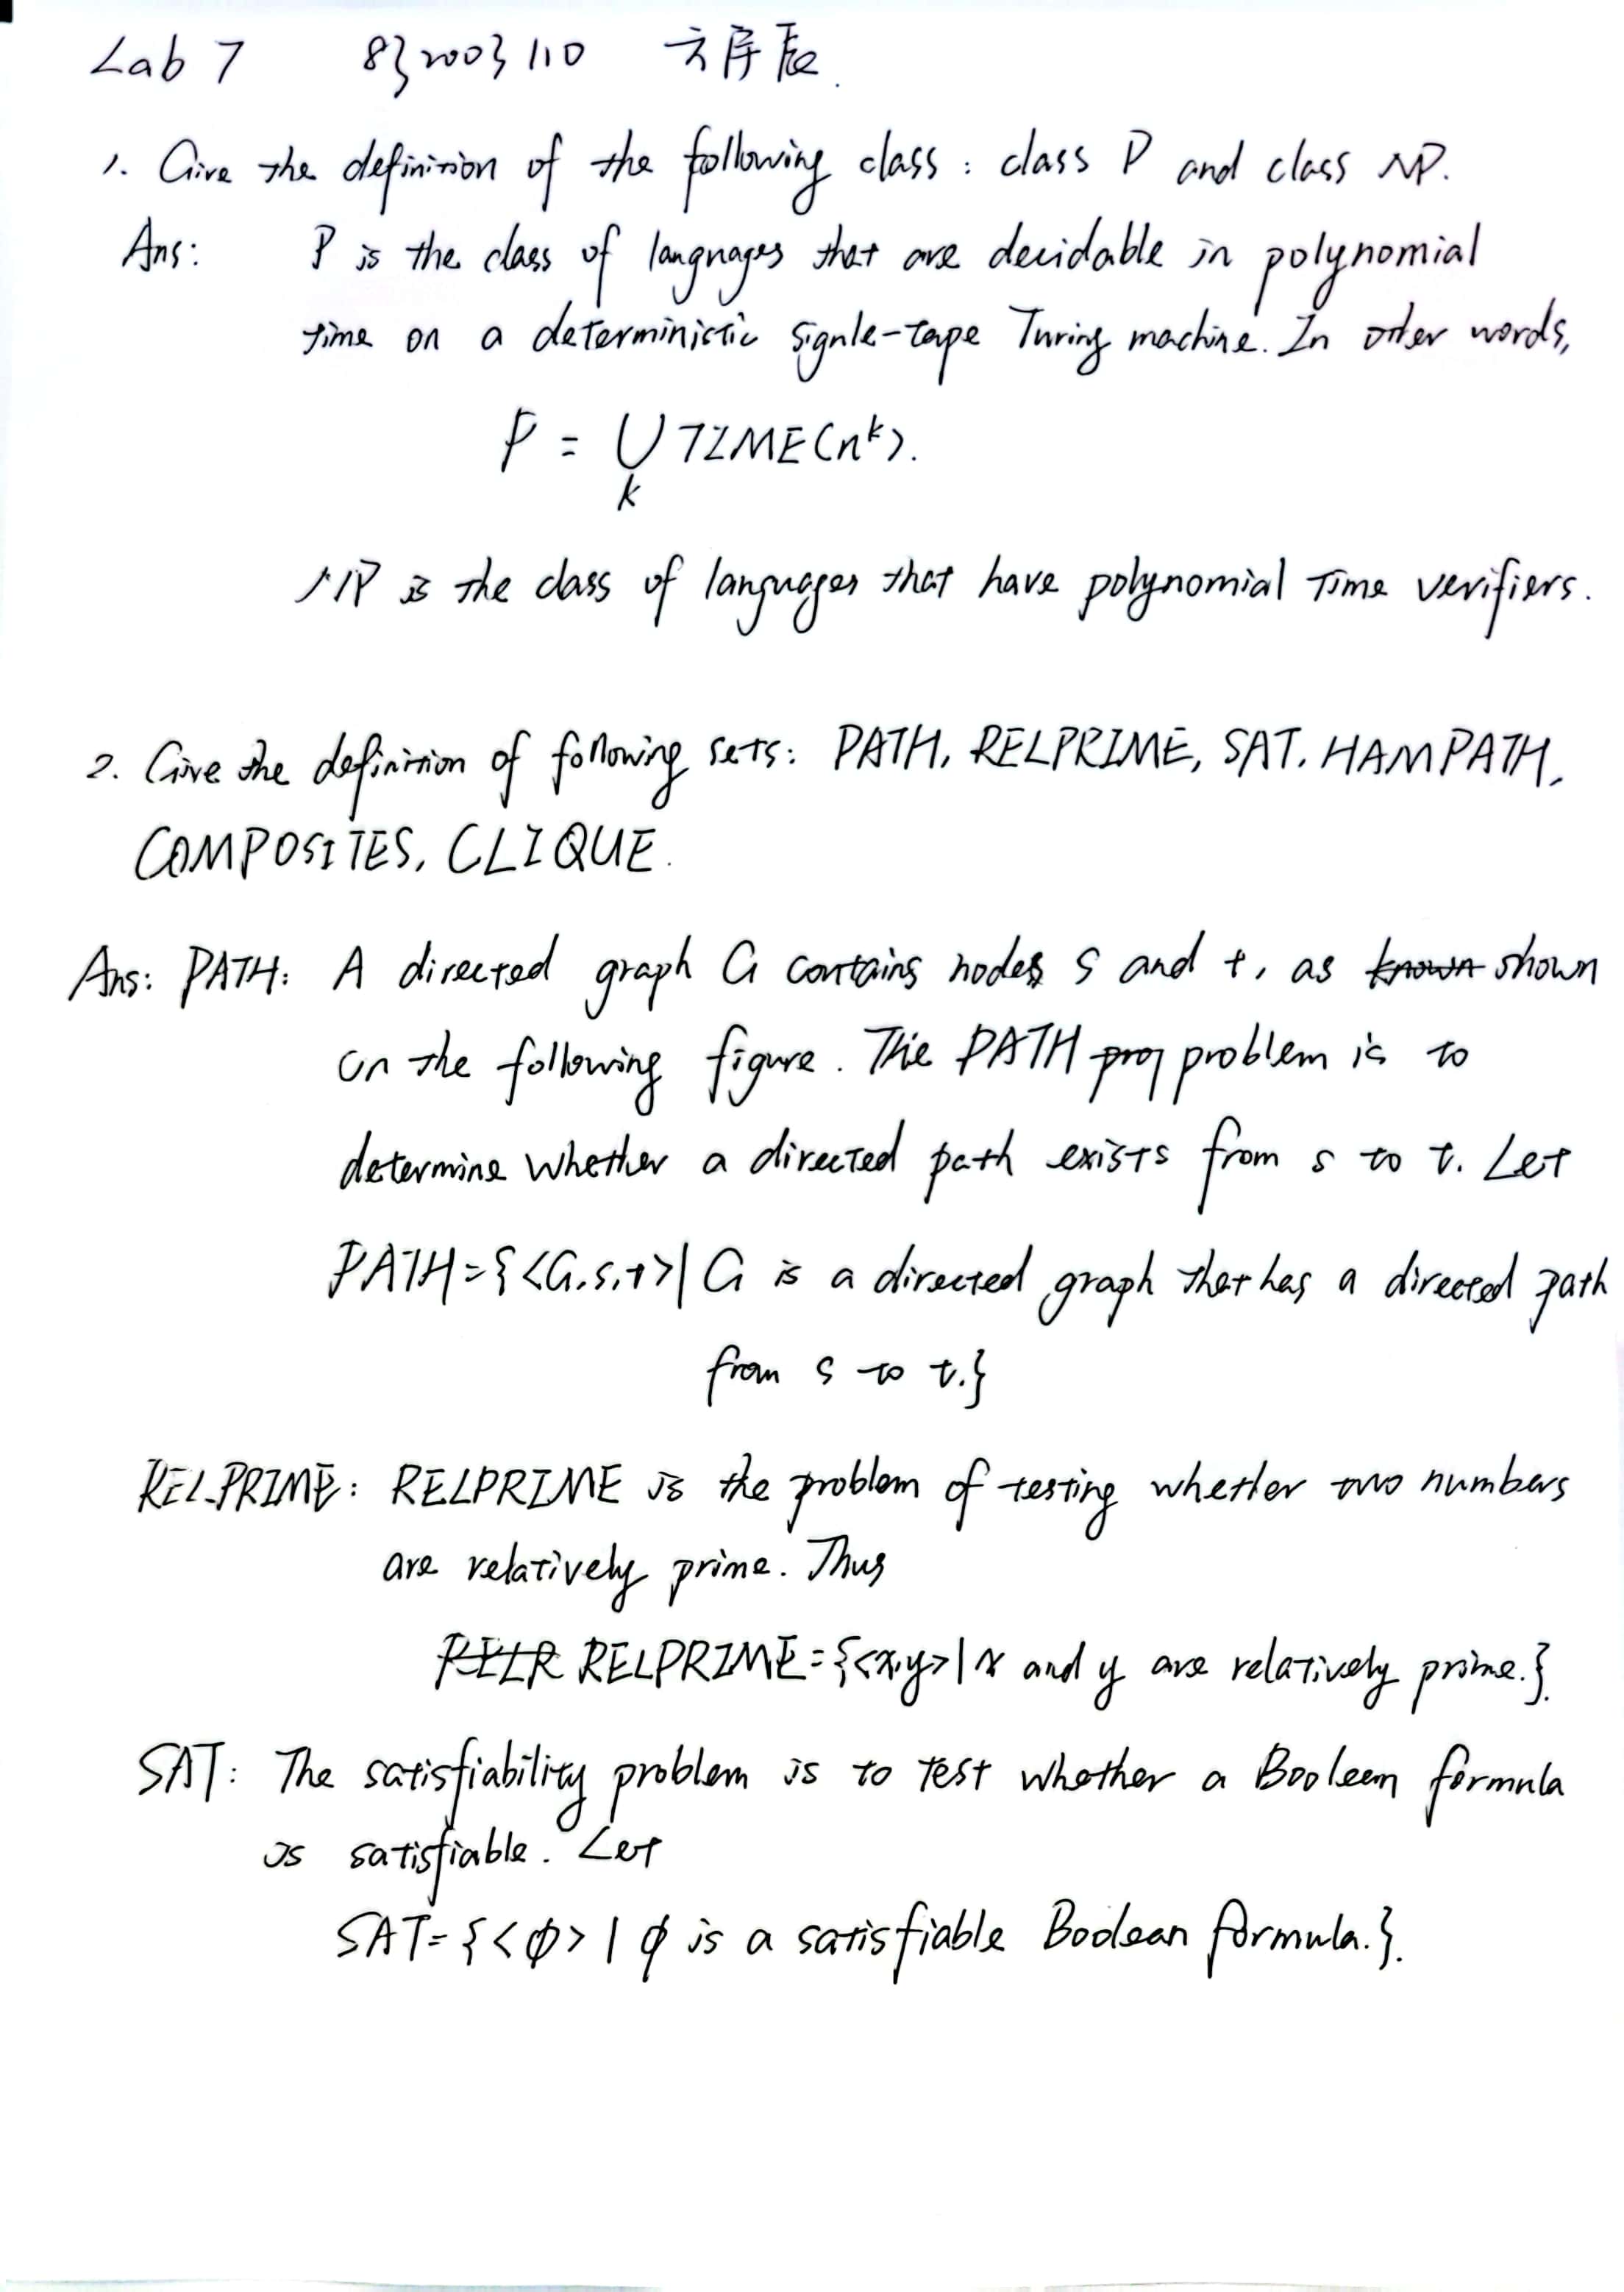 Lab 7 8}2003110 方辰
1. Give the definition of the following class: class P and class NP.
Ans: P is the class of languages that are decidable in polynomial
time on a deterministic signle-tape Turing machine. In other words,
P = ∪ TIME(n^k).
k
NP is the class of languages that have polynomial time verifiers.
2. Give the definition of following sets: PATH, RELPRIME, SAT, HAMPATH,
COMPOSITES, CLIQUE.
Ans: PATH: A directed graph G contains nodes s and t, as known shown
on the following figure. The PATH problem is to
determine whether a directed path exists from s to t. Let
PATH={<G,s,t>| G is a directed graph that has a directed path
from s to t.}
RELPRIME: RELPRIME is the problem of testing whether two numbers
are relatively prime. Thus
RELR RELPRIME={<x,y>| x and y are relatively prime.}.
SAT: The satisfiability problem is to test whether a Boolean formula
is satisfiable. Let
SAT={<φ> | φ is a satisfiable Boolean formula.}.